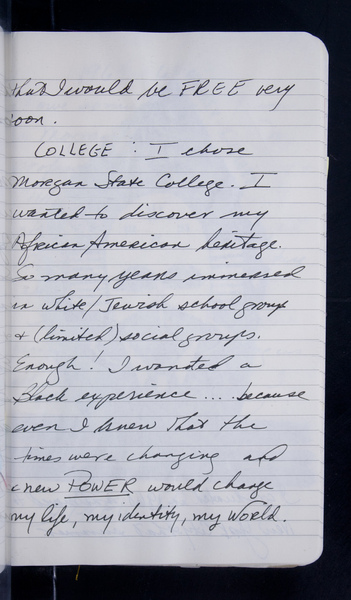 that I would be FREE very
soon.
COLLEGE : I chose
Morgan State College. I
wanted to discover my
African American heritage.
So many years immersed
in white/Jewish school group
+ (limited) social groups.
Enough! I wanted a
Black experience.... because
even I knew that the
times were changing and
a new POWER would change
my life, my identity, my World.